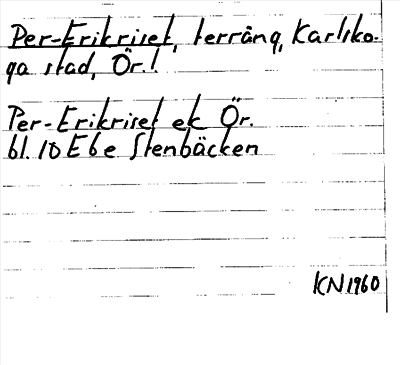 Per-Erikriset, terräng, Karlsko-
ga stad, Ör.l
Per-Erikriset ek Ör.
bl. 10 E 6e Stenbäcken
KN 1960